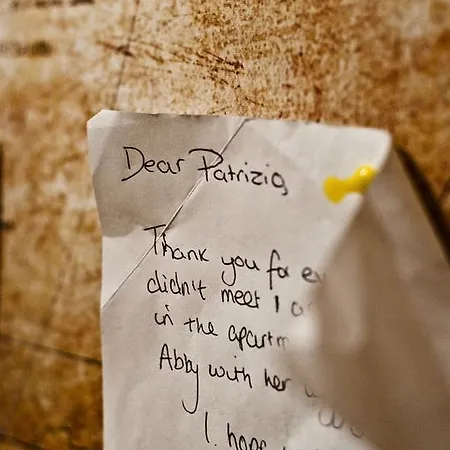 Dear Patrizio,
Thank you for
didn't meet I
in the
Abby with her
I hope